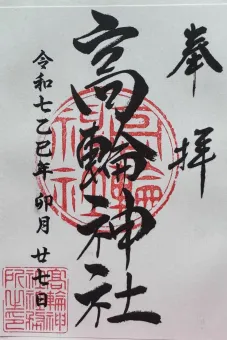 奉拝
高輪神社
令和七乙巳年 卯月 廿七日
高輪神社